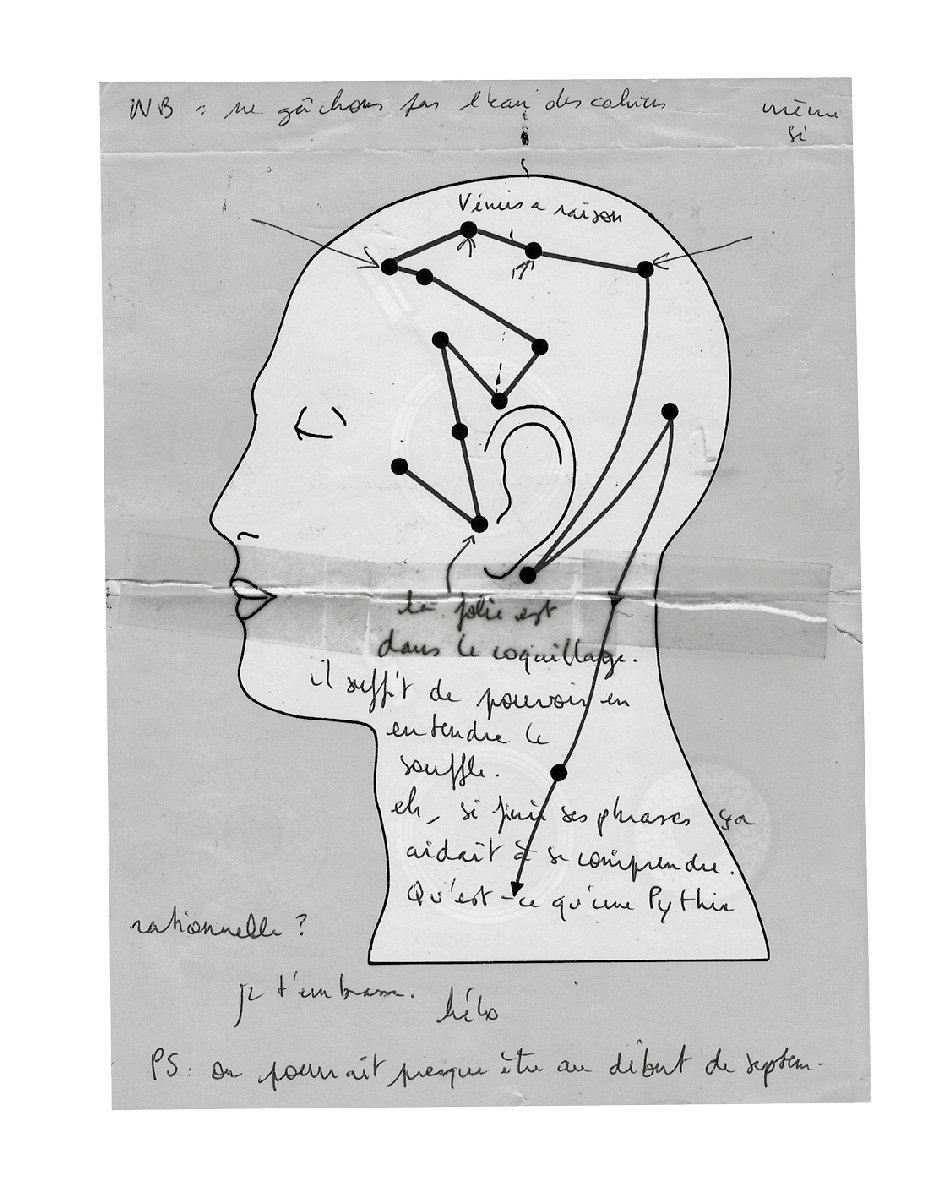 NB : ne gâchons pas l'eau des cahiers même
si
Vénus a raison
la folie est
dans le coquillage.
il suffit de pouvoir en
entendre le
souffle.
eh, si finir ses phrases ça
aidait à se comprendre.
Qu'est-ce qu'une Pythie
rationnelle ?
je t'embrasse.
hélo
PS : on pourrait presque être au début de septem-